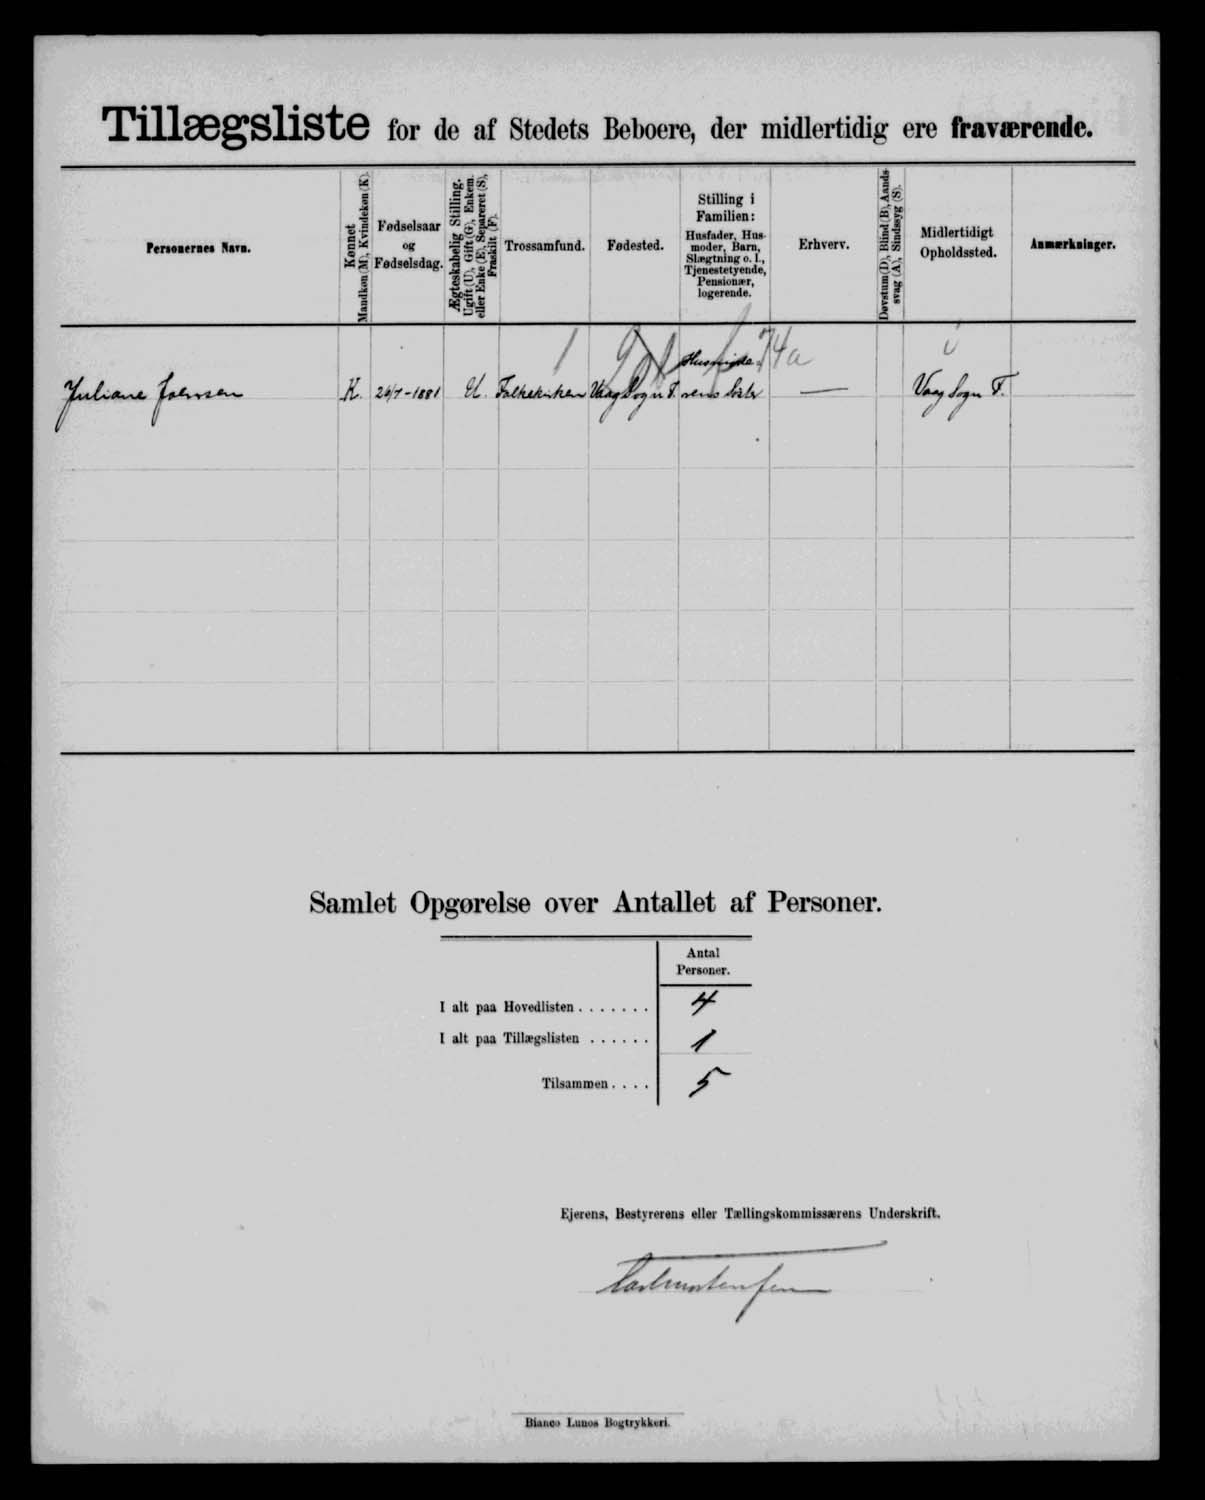 Tillægsliste for de af Stedets Beboere, der midlertidig ere fraværende.
Personernes Navn.
Kønnet
Mandkøn (M), Kvindekøn (K).
Fødselsaar
og
Fødselsdag.
Ægteskabelig Stilling.
Ugift (U), Gift (G), Enkem.
eller Enke (E), Separeret (S),
Fraskilt (F).
Trossamfund.
Fødested.
Stilling i
Familien:
Husfader, Hus-
moder, Barn,
Slægtning o. l.,
Tjenestetyende,
Pensionær,
logerende.
Erhverv.
Døvstum (D), Blind (B), Aands-
svag (A), Sindssyg (S).
Midlertidigt
Opholdssted.
Anmærkninger.
1 74a
Juliane Joensen K. 26/7-1881 U. Folkekirken Vaag Sogn F. søster — Vaag Sogn F.
Samlet Opgørelse over Antallet af Personer.
Antal
Personer.
I alt paa Hovedlisten . . . . . . . 4
I alt paa Tillægslisten . . . . . . 1
Tilsammen . . . . 5
Ejerens, Bestyrerens eller Tællingskommissærens Underskrift.
Bianco Lunos Bogtrykkeri.